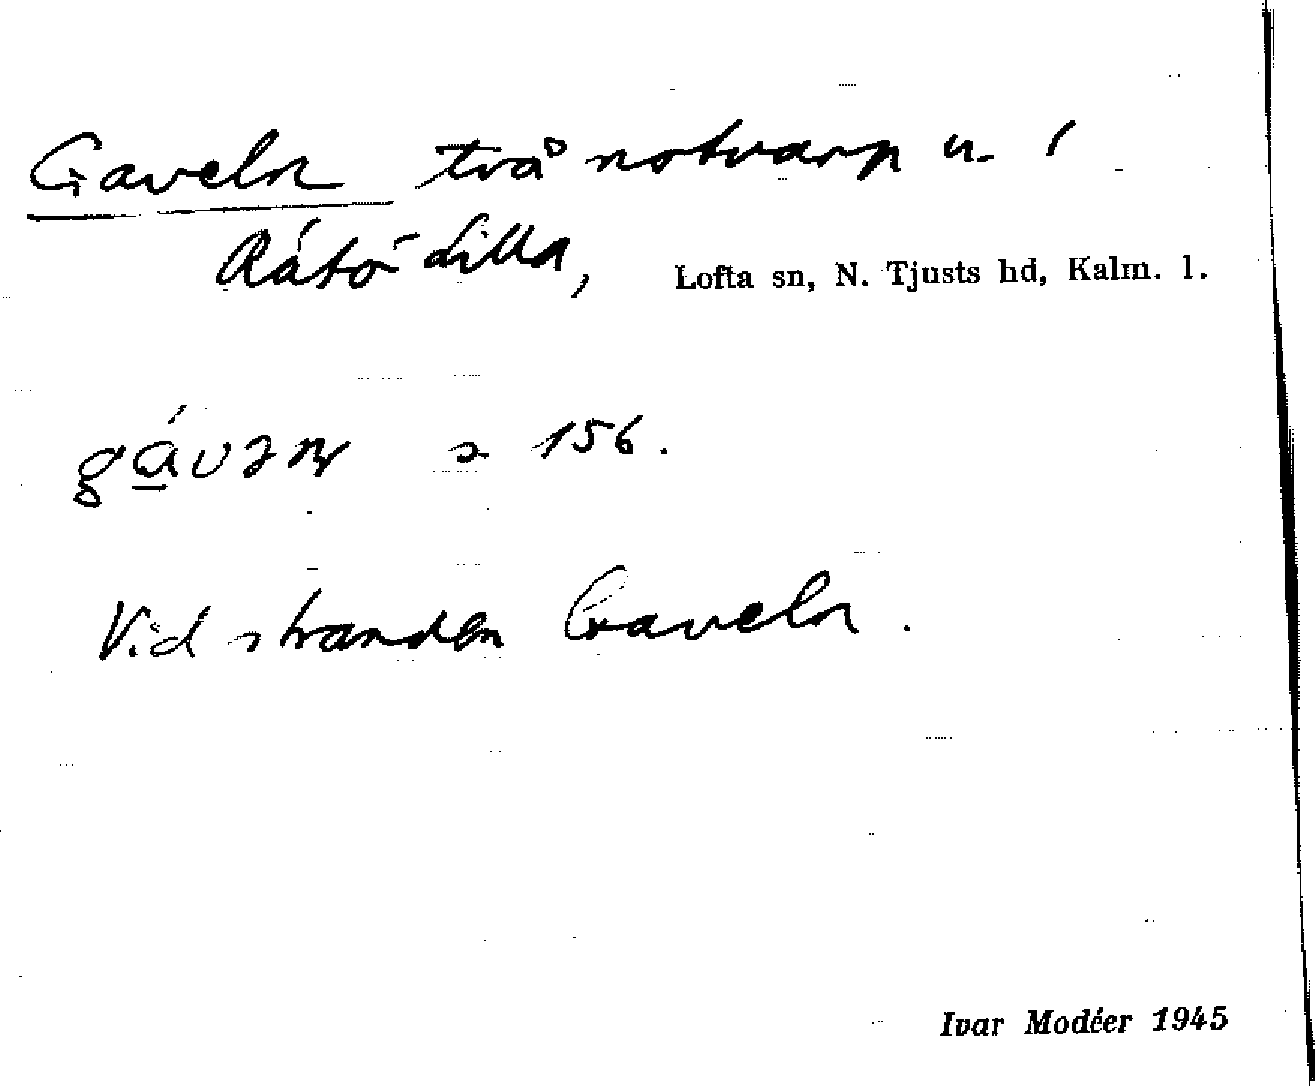 Gaveln två notvarp n. i
Råtö Lilla, Lofta sn, N. Tjusts hd, Kalm. l.
gávəṇ s 156.
Vid stranden Gaveln.
Ivar Modéer 1945